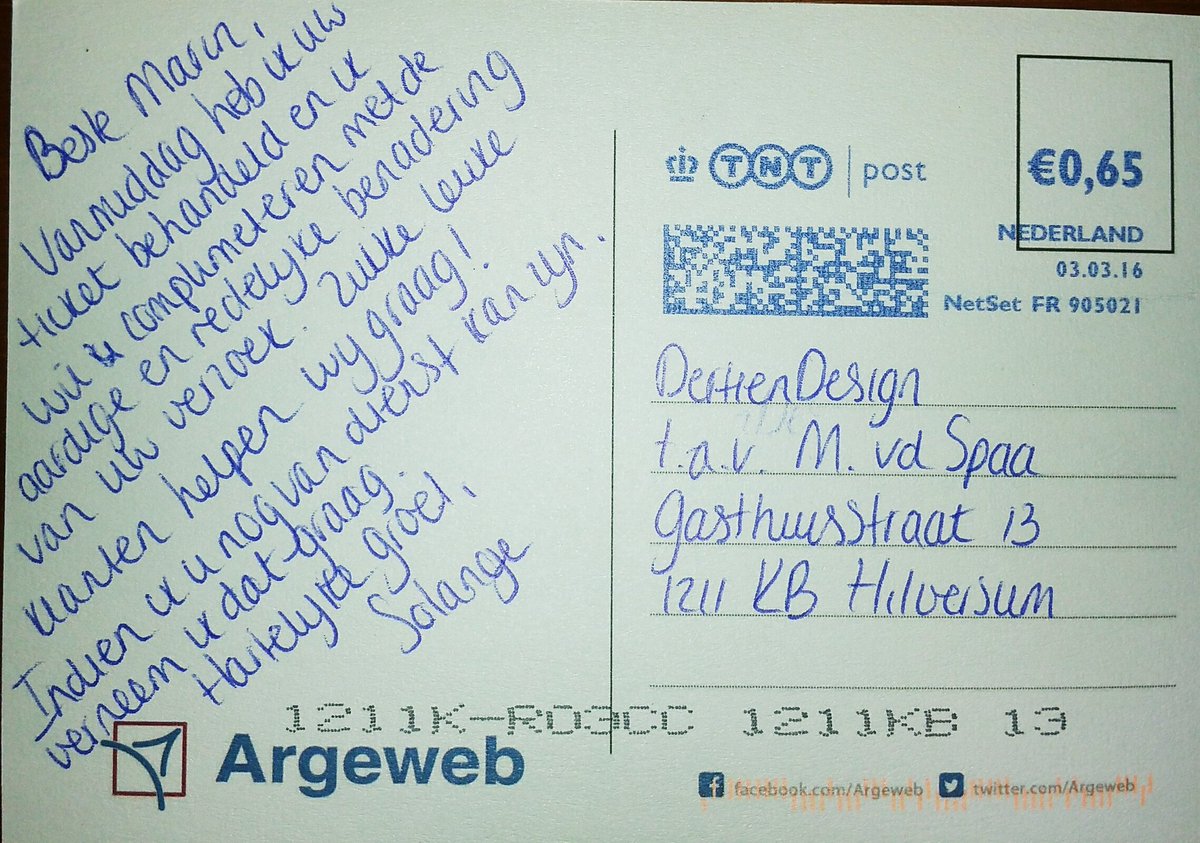 Beste Marin,
Vanmiddag heb ik uw
ticket behandeld en ik
wil u complimenteren met de
aardige en redelijke benadering
van uw verzoek. Zulke leuke
klanten helpen wij graag!
Indien ik u nog van dienst kan zijn,
verneem ik dat graag.
Hartelijke groet,
Solange
Argeweb
TNT post
€0,65
NEDERLAND
03.03.16
NetSet FR 905021
DertienDesign
t.a.v. M. vd Spaa
Gasthuisstraat 13
1211 KB Hilversum
1211K-RD3CC 1211KB 13
facebook.com/Argeweb twitter.com/Argeweb